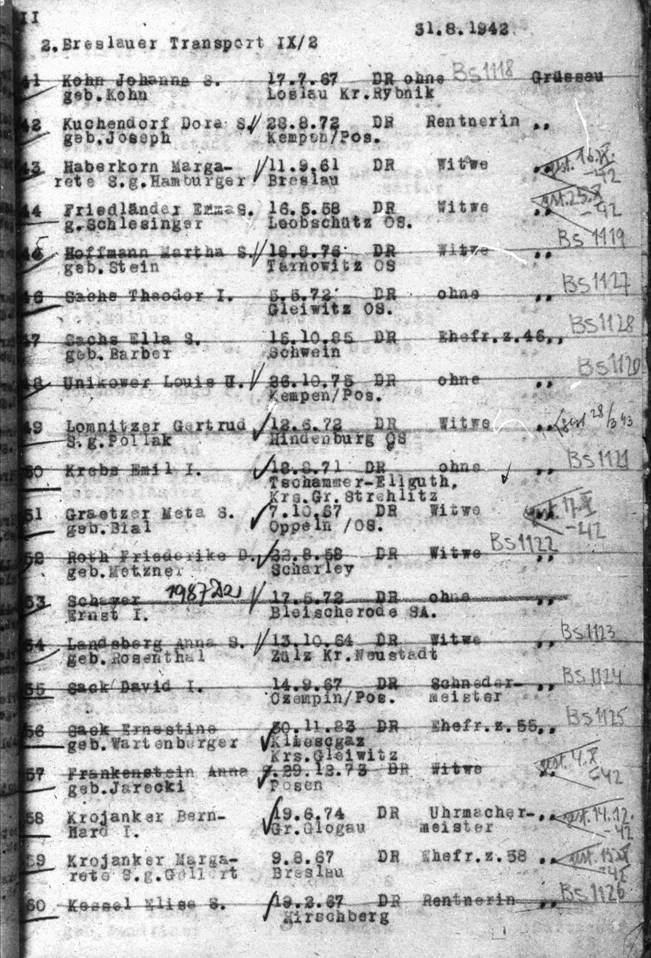 II
31.8.1942.
2.Breslauer Transport IX/2
41 Kohn Johanna S. 17.7.67 DR ohne Bs1118 Grüssau
geb.Kohn Loslau Kr.Rybnik
42 Kuchendorf Dora S. 28.8.72 DR Rentnerin ,,
geb.Joseph Kempen/Pos.
43 Haberkorn Marga- 11.9.61 DR Witwe ,, gest. 16.X. -42
rete S.g.Hamburger Breslau
44 Friedländer Emma S. 16.5.58 DR Witwe ,, gest. 25.X -42
g.Schlesinger Leobschütz OS.
45 Hoffmann Martha S. 18.8.76 DR Witwe ,, Bs1119
geb.Stein Tarnowitz OS
46 Sachs Theodor I. 5.5.72 DR ohne ,, Bs1127
Gleiwitz OS.
47 Sachs Ella S. 15.10.85 DR Ehefr.z.46,, Bs1128
geb.Barber Schwein
48 Unikower Louis I. 26.10.75 DR ohne ,, Bs1120
Kempen/Pos.
49 Lomnitzer Gertrud 12.6.72 DR Witwe ,, gest 28/3 43
S.g.Pollak Hindenburg OS
50 Krebs Emil I. 18.8.71 DR ohne ,, Bs1121
Tschammer-Ellguth,
Krs.Gr.Strehlitz
51 Graetzer Meta S. 7.10.67 DR Witwe gest. -42
geb.Bial Oppeln /OS.
52 Roth Friederike D. 23.8.58 DR Witwe Bs1122 ,,
geb.Metzner Scharley
53 Schayer 17.5.72 DR ohne ,,
Ernst I. Bleischerode SA.
54 Landsberg Anna S. 13.10.64 DR Witwe ,, Bs1123
geb.Rosenthal Zülz Kr.Neustadt
55 Sack David I. 14.9.67 DR Schneder- ,, Bs1124
Czempin/Pos. meister
56 Sack Ernestine 30.11.83 DR Ehefr.z.55,, Bs1125
geb.Wartenburger
Krs.Gleiwitz
57 Frankenstein Anna 29.12.73 DR Witwe ,, gest. 4.X -42
geb.Jarecki Posen
58 Krojanker Bern- 19.6.74 DR Uhrmacher- ,, gest. 14.12. -42
hard I. Gr.Glogau meister
59 Krojanker Marga- 9.8.67 DR Ehefr.z.58 ,, gest. -42
rete S.g.Gellert Breslau
60 Kessel Elise S. 19.2.67 DR Rentnerin ,, Bs1126
Hirschberg